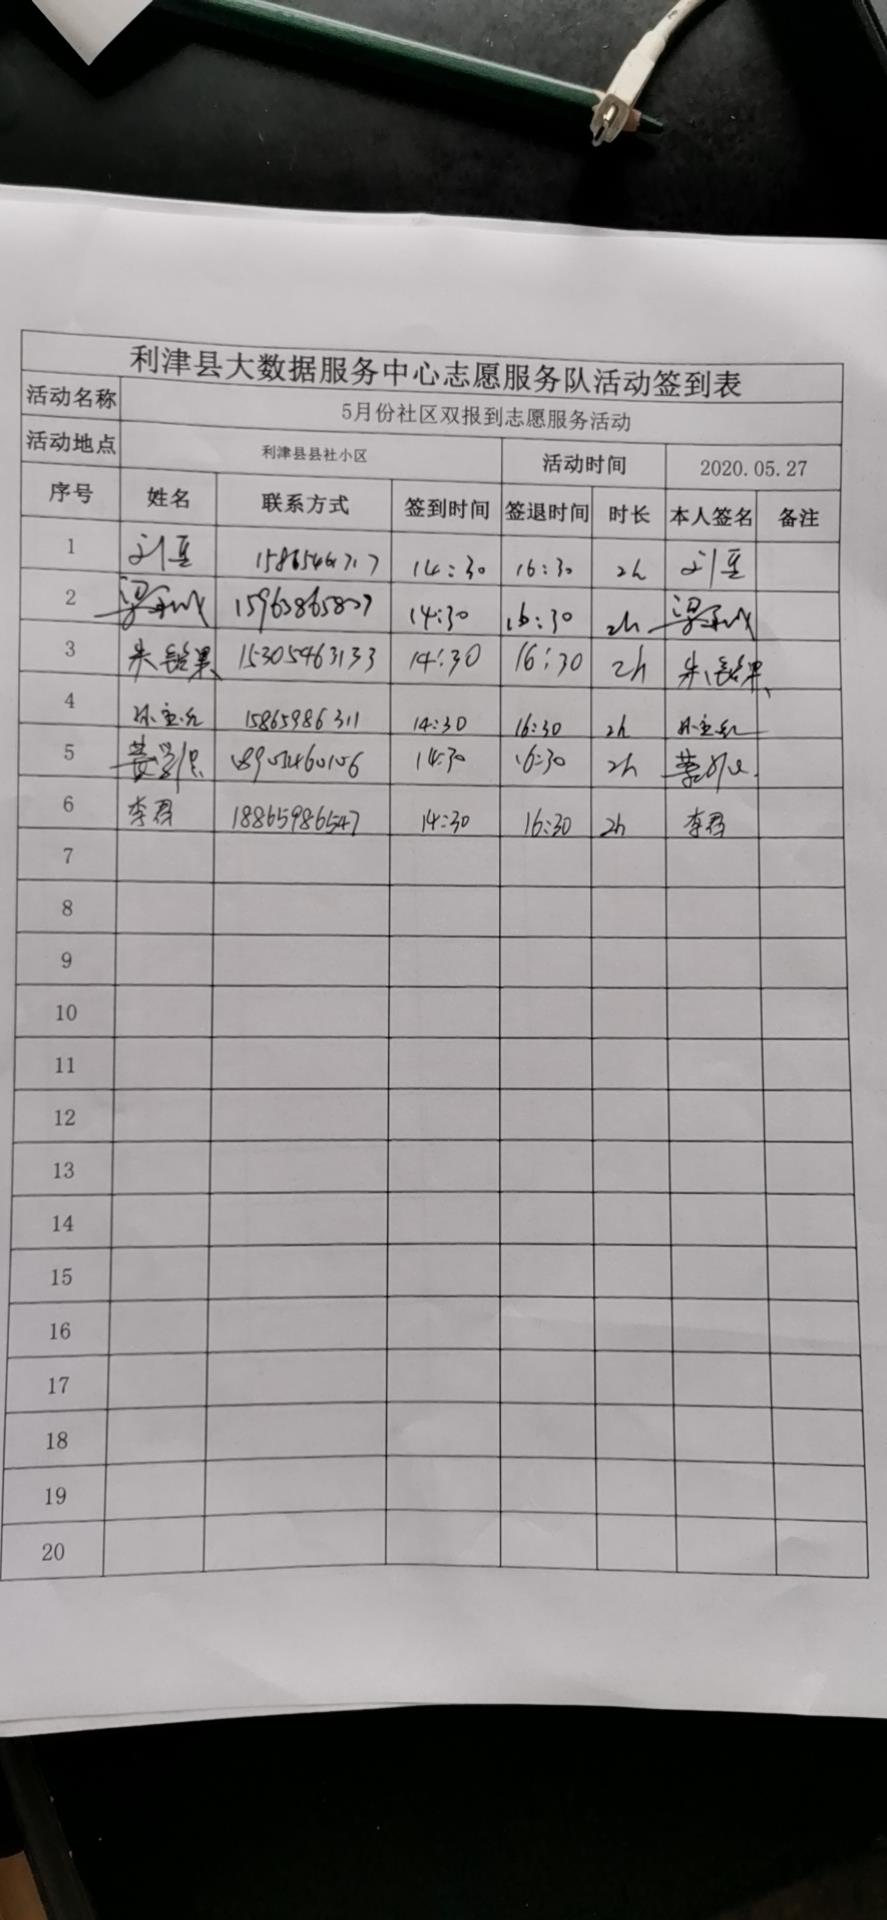 利津县大数据服务中心志愿服务队活动签到表
活动名称 5月份社区双报到志愿服务活动
活动地点 利津县县社小区 活动时间 2020.05.27
序号 姓名 联系方式 签到时间 签退时间 时长 本人签名 备注
1 14:30 16:30 2h
2 14:30 16:30 2h
3 15305463133 14:30 16:30 2h
4 15865986311 14:30 16:30 2h
5 14:30 16:30 2h
6 李君 18865986547 14:30 16:30 2h 李君
7
8
9
10
11
12
13
14
15
16
17
18
19
20